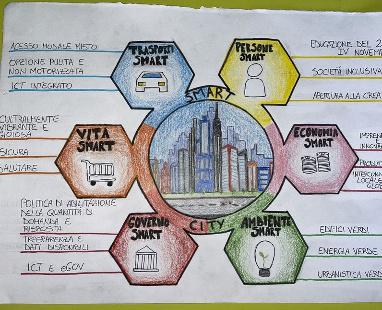 ACCESSO MODALE MISTO
OPZIONE PULITA E
NON MOTORIZZATA
ICT INTEGRATO
TRASPORTI
SMART
PERSONE
SMART
EDUCAZIONE DEL 2
IV NOVEM
SOCIETÀ INCLUSIVA
APERTURA ALLA CREA
SMART
CITY
CULTURALMENTE
VIBRANTE E
GIOIOSA
SICURA
SALUTARE
VITA
SMART
ECONOMIA
SMART
IMPREN
INNOVA
PRODUT
INTERCONN
LOCALE
GLO
POLITICA DI
NELLA QUANTITÀ DI
DOMANDA E
RISPOSTA
TRASPARENZA E
DATI DISPONIBILI
ICT E eGOV
GOVERNO
SMART
AMBIENTE
SMART
EDIFICI VERDI
ENERGIA VERDE
URBANISTICA VERD